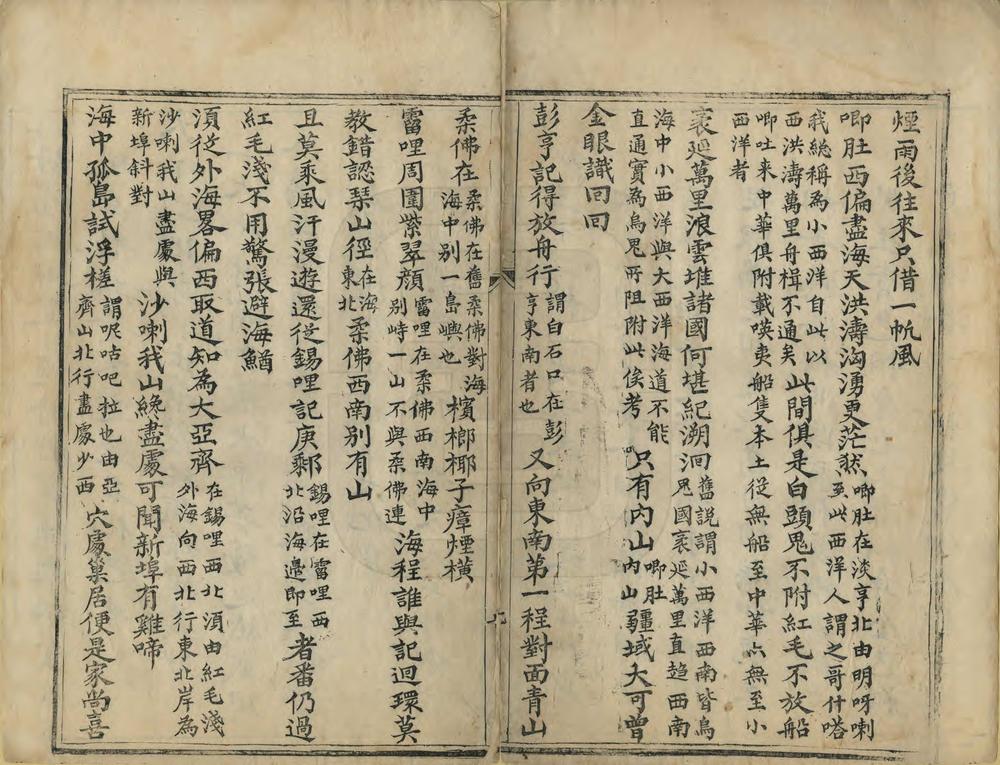 煙雨後往來只借一帆風
唧肚西偏盡海天洪濤洶湧更茫然唧肚在淡亨北由明呀喇至此西洋人謂之哥什嗒
我総稱為小西洋自此以西洪濤萬里舟楫不通矣此間俱是白頭鬼不附紅毛不放船
唧吐来中華俱附載嘆夷船隻本土從無船至中華亦無至小西洋者
袤延萬里浪雲堆諸國何堪紀溯洄舊説謂小西洋西南皆烏鬼國袤延萬里直趋西南
海中小西洋與大西洋海道不能直通實為烏鬼所阻附此俟考只有内山唧肚内山疆域大可曾
金眼識回回
彭亨記得放舟行謂白石口在彭亨東南者也又向東南第一程對面青山
柔佛在柔佛在舊柔佛對海海中別一島嶼也檳榔椰子瘴煙横
雷哩周圍紫翠顔雷哩在柔佛西南海中別峙一山不與柔佛連海程誰與記迴環莫
教錯認琹山徑在海東北柔佛西南別有山
且莫乘風汗漫遊還從錫哩記庚郵錫哩在雷哩西北沿海邊即至者番仍過
紅毛淺不用驚張避海鰌
須從外海畧偏西取道知為大亞齊在錫哩西北須由紅毛淺外海向西北行東北岸為
沙喇我山盡處與新埠斜對沙喇我山纔盡處可聞新埠有雞啼
海中孤島試浮槎謂呢咕吧拉也由亞齊山北行盡處少西穴處巢居便是家尚喜